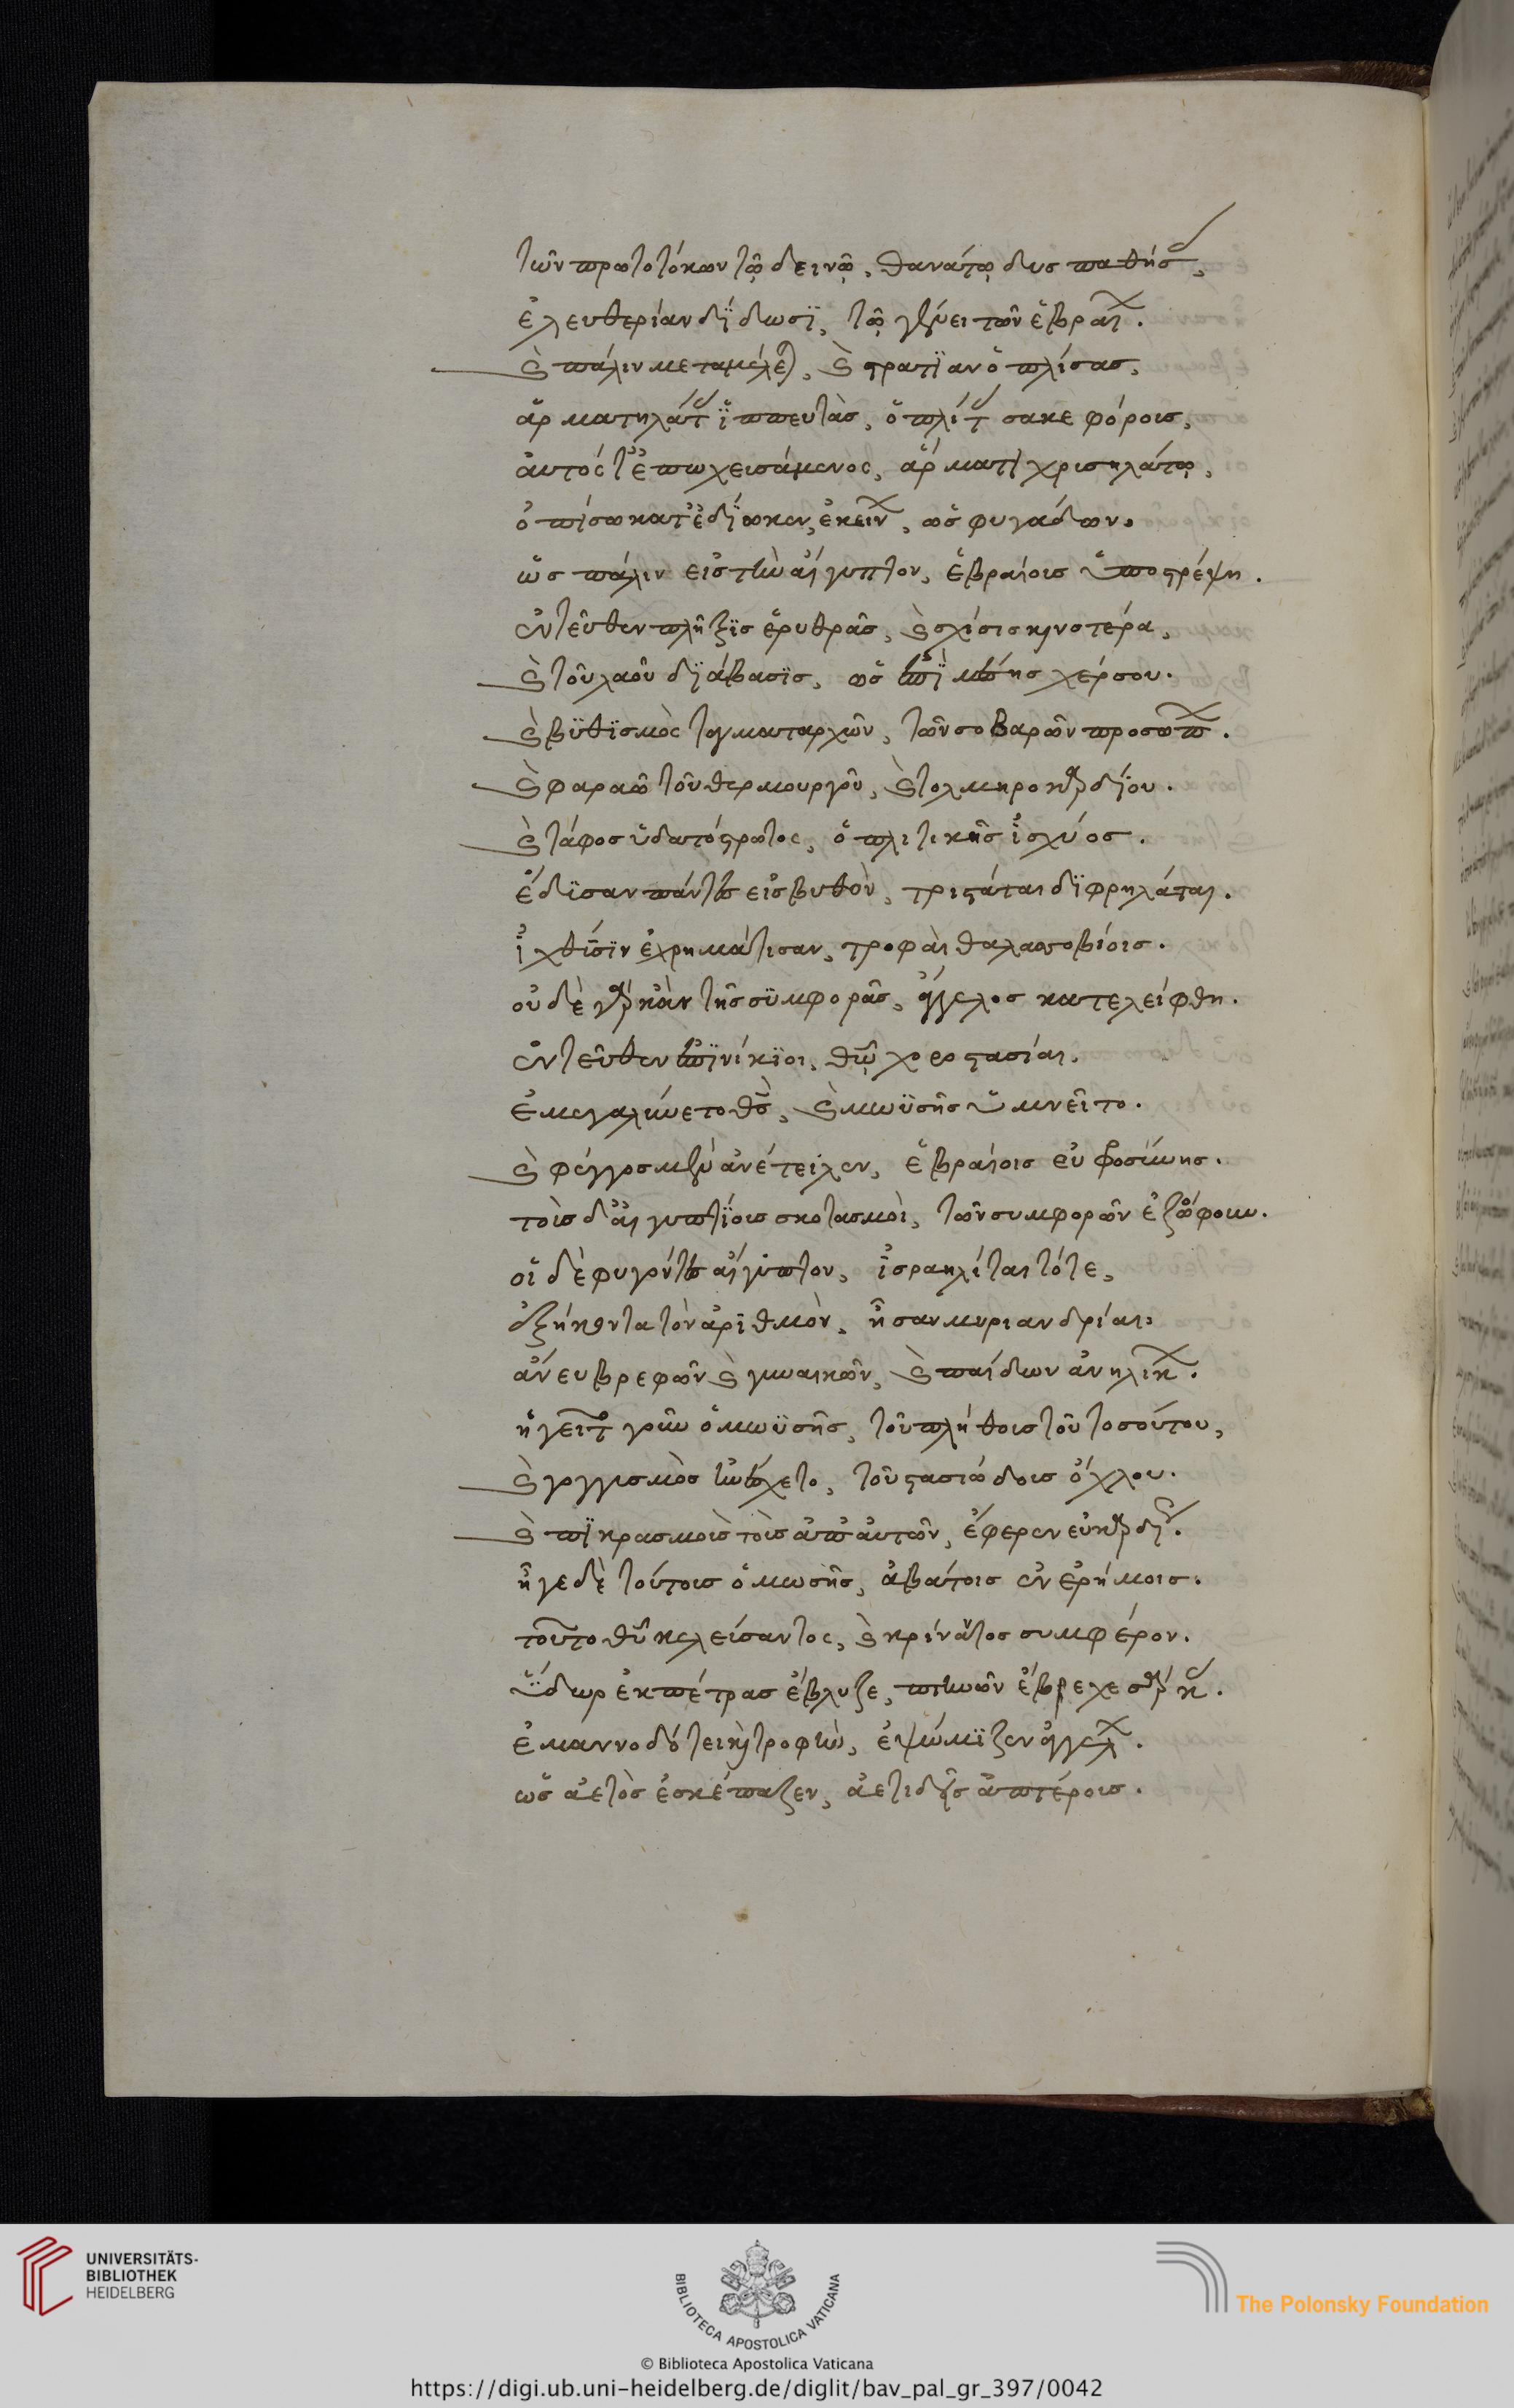 τῶν πρωτοτόκων τῷ δεινῷ, θανάτῳ δυσπαθήσ
ἐλευθερίαν δίδωσι, τῷ γένει τῶν ἑβραί.
καὶ πάλιν μεταμέλε, καὶ στρατϊὰν ὁπλίσας,
ἁρματηλάτ ἱππευτὰς, ὁπλίτ σακεφόροις,
αὐτός τ' ἐπωχεισάμενος, ἅρματι χρισηλάτῳ,
ὀπίσω κατεδίωκεν, ἐκείν, ὡς φυγάδων.
ὡς πάλιν εἰς τὴν αἴγυπτον, ἑβραίοις ὑποστρέψη.
ἐντεῦθεν πλῆξϊς ἐρυθρᾶς, καὶ σχίσις
καὶ τοῦ λαοῦ δϊάβασϊς, ὡς ἐπὶ μέσης χέρσου.
καὶ βϋθϊσμὸς ταγματαρχῶν, τῶν σοβαρῶν προσώπ.
καὶ φαραὼ τοῦ θερμουργοῦ, καὶ τολμηροκαρδίου.
καὶ τάφος ὑδατόστρωτος, ὁπλιτικῆς ἰσχύος.
ἔδϊσαν πάντες εἰς βυθὸν, τριστάται δϊφρηλάται.
ἰχθύσϊν ἐχρημάτισαν, τροφαὶ θαλασσοβίοις.
οὐδὲ γὰρ κἂν τῆς συμφορᾶς, ἄγγελος κατελείφθη.
ἐντεῦθεν ἐπϊνίκϊοι, θῶ χοροστασίαι.
ἐμεγαλύνετο θς, καὶ μωϋσῆς ὑμνεῖτο.
καὶ φέγγος μὲν ἀνέτειλεν, ἑβραίοις εὐφροσύνης.
τοῖς δ' αἰγυπτίοις σκοτασμοὶ, τῶν συμφορῶν ἐζόφουν.
οἱ δὲ φυγόντες αἴγυπτον, ἰσραηλίται τότε,
ἑξήκοντα τὸν ἀριθμὸν, ἦσαν μυριανδρίαι.
ἄνευ βρεφῶν καὶ γυναικῶν, καὶ παίδων ἀνηλίκ.
ἡγεῖτο γοῦν ὁ μωϋσῆς, τοῦ πλήθοις τοῦ τοσούτου,
καὶ γογγισμὸς ὑπέσχετο, τοῦ στασιώδοις ὄχλου.
καὶ πϊκρασμοὶς τοὶς ἀπ' αὐτῶν, ἔφερεν εὐκαρδί.
ἦγε δὲ τούτοις ὁ μωσῆς, ἀβάτοις ἐν ἐρήμοις.
τοῦτο θῦ κελείσαντος, καὶ κρίναντος συμφέρον.
ὕδωρ ἐκ πέτρας ἔβλυζε, πτηνῶν ἔβρεχε σάρκ.
ἐμαννοδότει καὶ τροφὴν, ἐψώμϊζεν ἀγγέλ.
ὡς ἀετὸς ἐσκέπαζεν, ἀετιδοῦς ἀπτέροις.
UNIVERSITÄTS-
BIBLIOTHEK
HEIDELBERG
BIBLIOTECA APOSTOLICA VATICANA
The Polonsky Foundation
© Biblioteca Apostolica Vaticana
https://digi.ub.uni-heidelberg.de/diglit/bav_pal_gr_397/0042